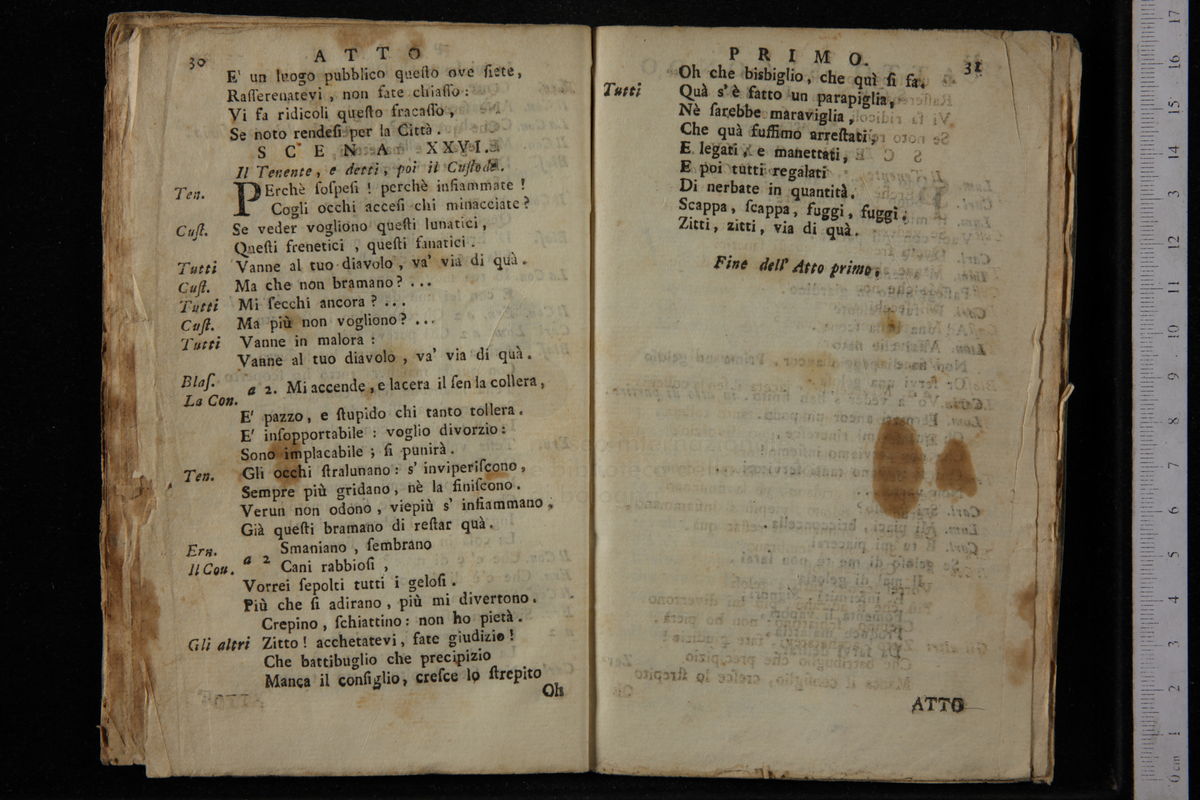 30
ATTO
E' un luogo pubblico queſto ove ſiete,
Raſſerenatevi, non fate chiaſſo:
Vi fa ridicoli queſto fracaſſo,
Se noto rendeſi per la Città.
SCENA XXVI.
Il Tenente, e detti, poi il Cuſtode.
Ten. PErchè ſoſpeſi! perchè infiammate!
Cogli occhi acceſi chi minacciate?
Cuſt. Se veder vogliono queſti lunatici,
Queſti frenetici, queſti fanatici.
Tutti Vanne al tuo diavolo, va' via di quà.
Cuſt. Ma che non bramano? ...
Tutti Mi ſecchi ancora? ...
Cuſt. Ma più non vogliono? ...
Tutti Vanne in malora:
Vanne al tuo diavolo, va' via di quà.
Blaſ.
La Con. a 2. Mi accende, e lacera il ſen la collera,
E' pazzo, e ſtupido chi tanto tollera.
E' inſopportabile: voglio divorzio:
Sono implacabile; ſi punirà.
Ten. Gli occhi ſtralunano: s' inviperiſcono,
Sempre più gridano, nè la finiſcono.
Verun non odono, viepiù s' infiammano,
Già queſti bramano di reſtar quà.
Ern.
Il Con. a 2 Smaniano, ſembrano
Cani rabbioſi,
Vorrei ſepolti tutti i geloſi.
Più che ſi adirano, più mi divertono.
Crepino, ſchiattino: non ho pietà.
Gli altri Zitto! acchetatevi, fate giudizio!
Che battibuglio che precipizio
Manca il conſiglio, creſce lo ſtrepito
Oh
PRIMO.
31
Oh che bisbiglio, che quì ſi fa.
Tutti Quà s'è fatto un parapiglia,
Nè ſarebbe maraviglia,
Che quà fuſſimo arreſtati,
E legati, e manettati,
E poi tutti regalati
Di nerbate in quantità.
Scappa, ſcappa, fuggi, fuggi.
Zitti, zitti, via di quà.
Fine dell' Atto primo.
ATTO